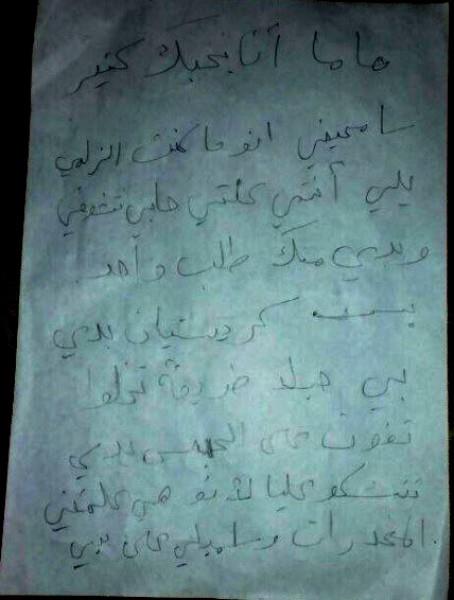 ماما أنا بحبك كتير
سامحيني انو ما كنت الزلمي
يلي أنتي كلتي حابي تشوفي
وبدي منك طلب واحد
بست كردستيان بدي
بي حبلا ضريقة تخلوا
تفوت على الحبس بدي
تتشكو عليا لأنو هي علمتني
المخدرات وسلميلي على بيي